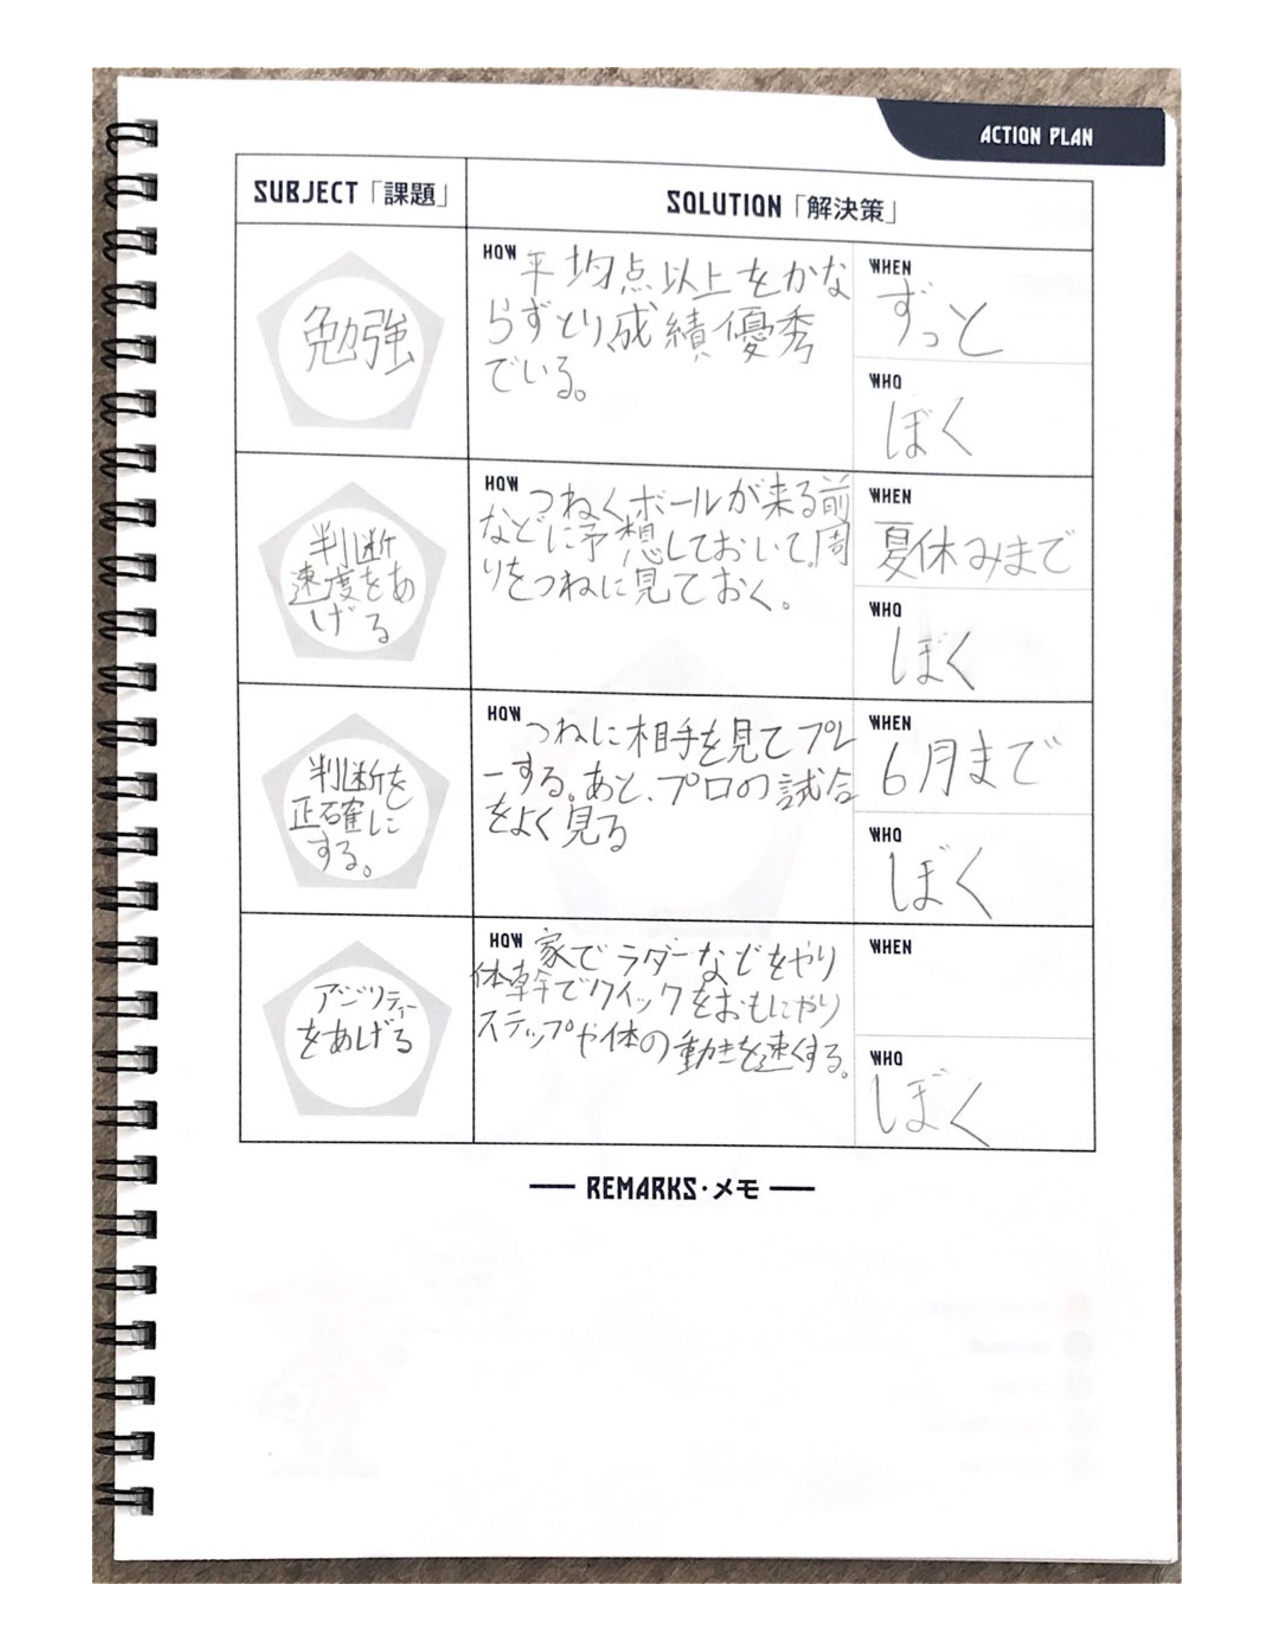 ACTION PLAN
SUBJECT「課題」
SOLUTION「解決策」
勉強
HOW
平均点以上をかな
らずとり、成績優秀
でいる。
WHEN
ずっと
WHO
ぼく
判断
速度をあ
げる
HOW
つねくボールが来る前
などに予想しておいて。周
りをつねに見ておく。
WHEN
夏休みまで
WHO
ぼく
判断を
正確に
する。
HOW
つねに相手を見てプレ
ーする。あと、プロの試合
をよく見る
WHEN
6月まで
WHO
ぼく
アジリティー
をあげる
HOW
家でラダーなどをやり
体幹でクイックをおもにやり
ステップや体の動きを速くする。
WHEN
WHO
ぼく
REMARKS・メモ